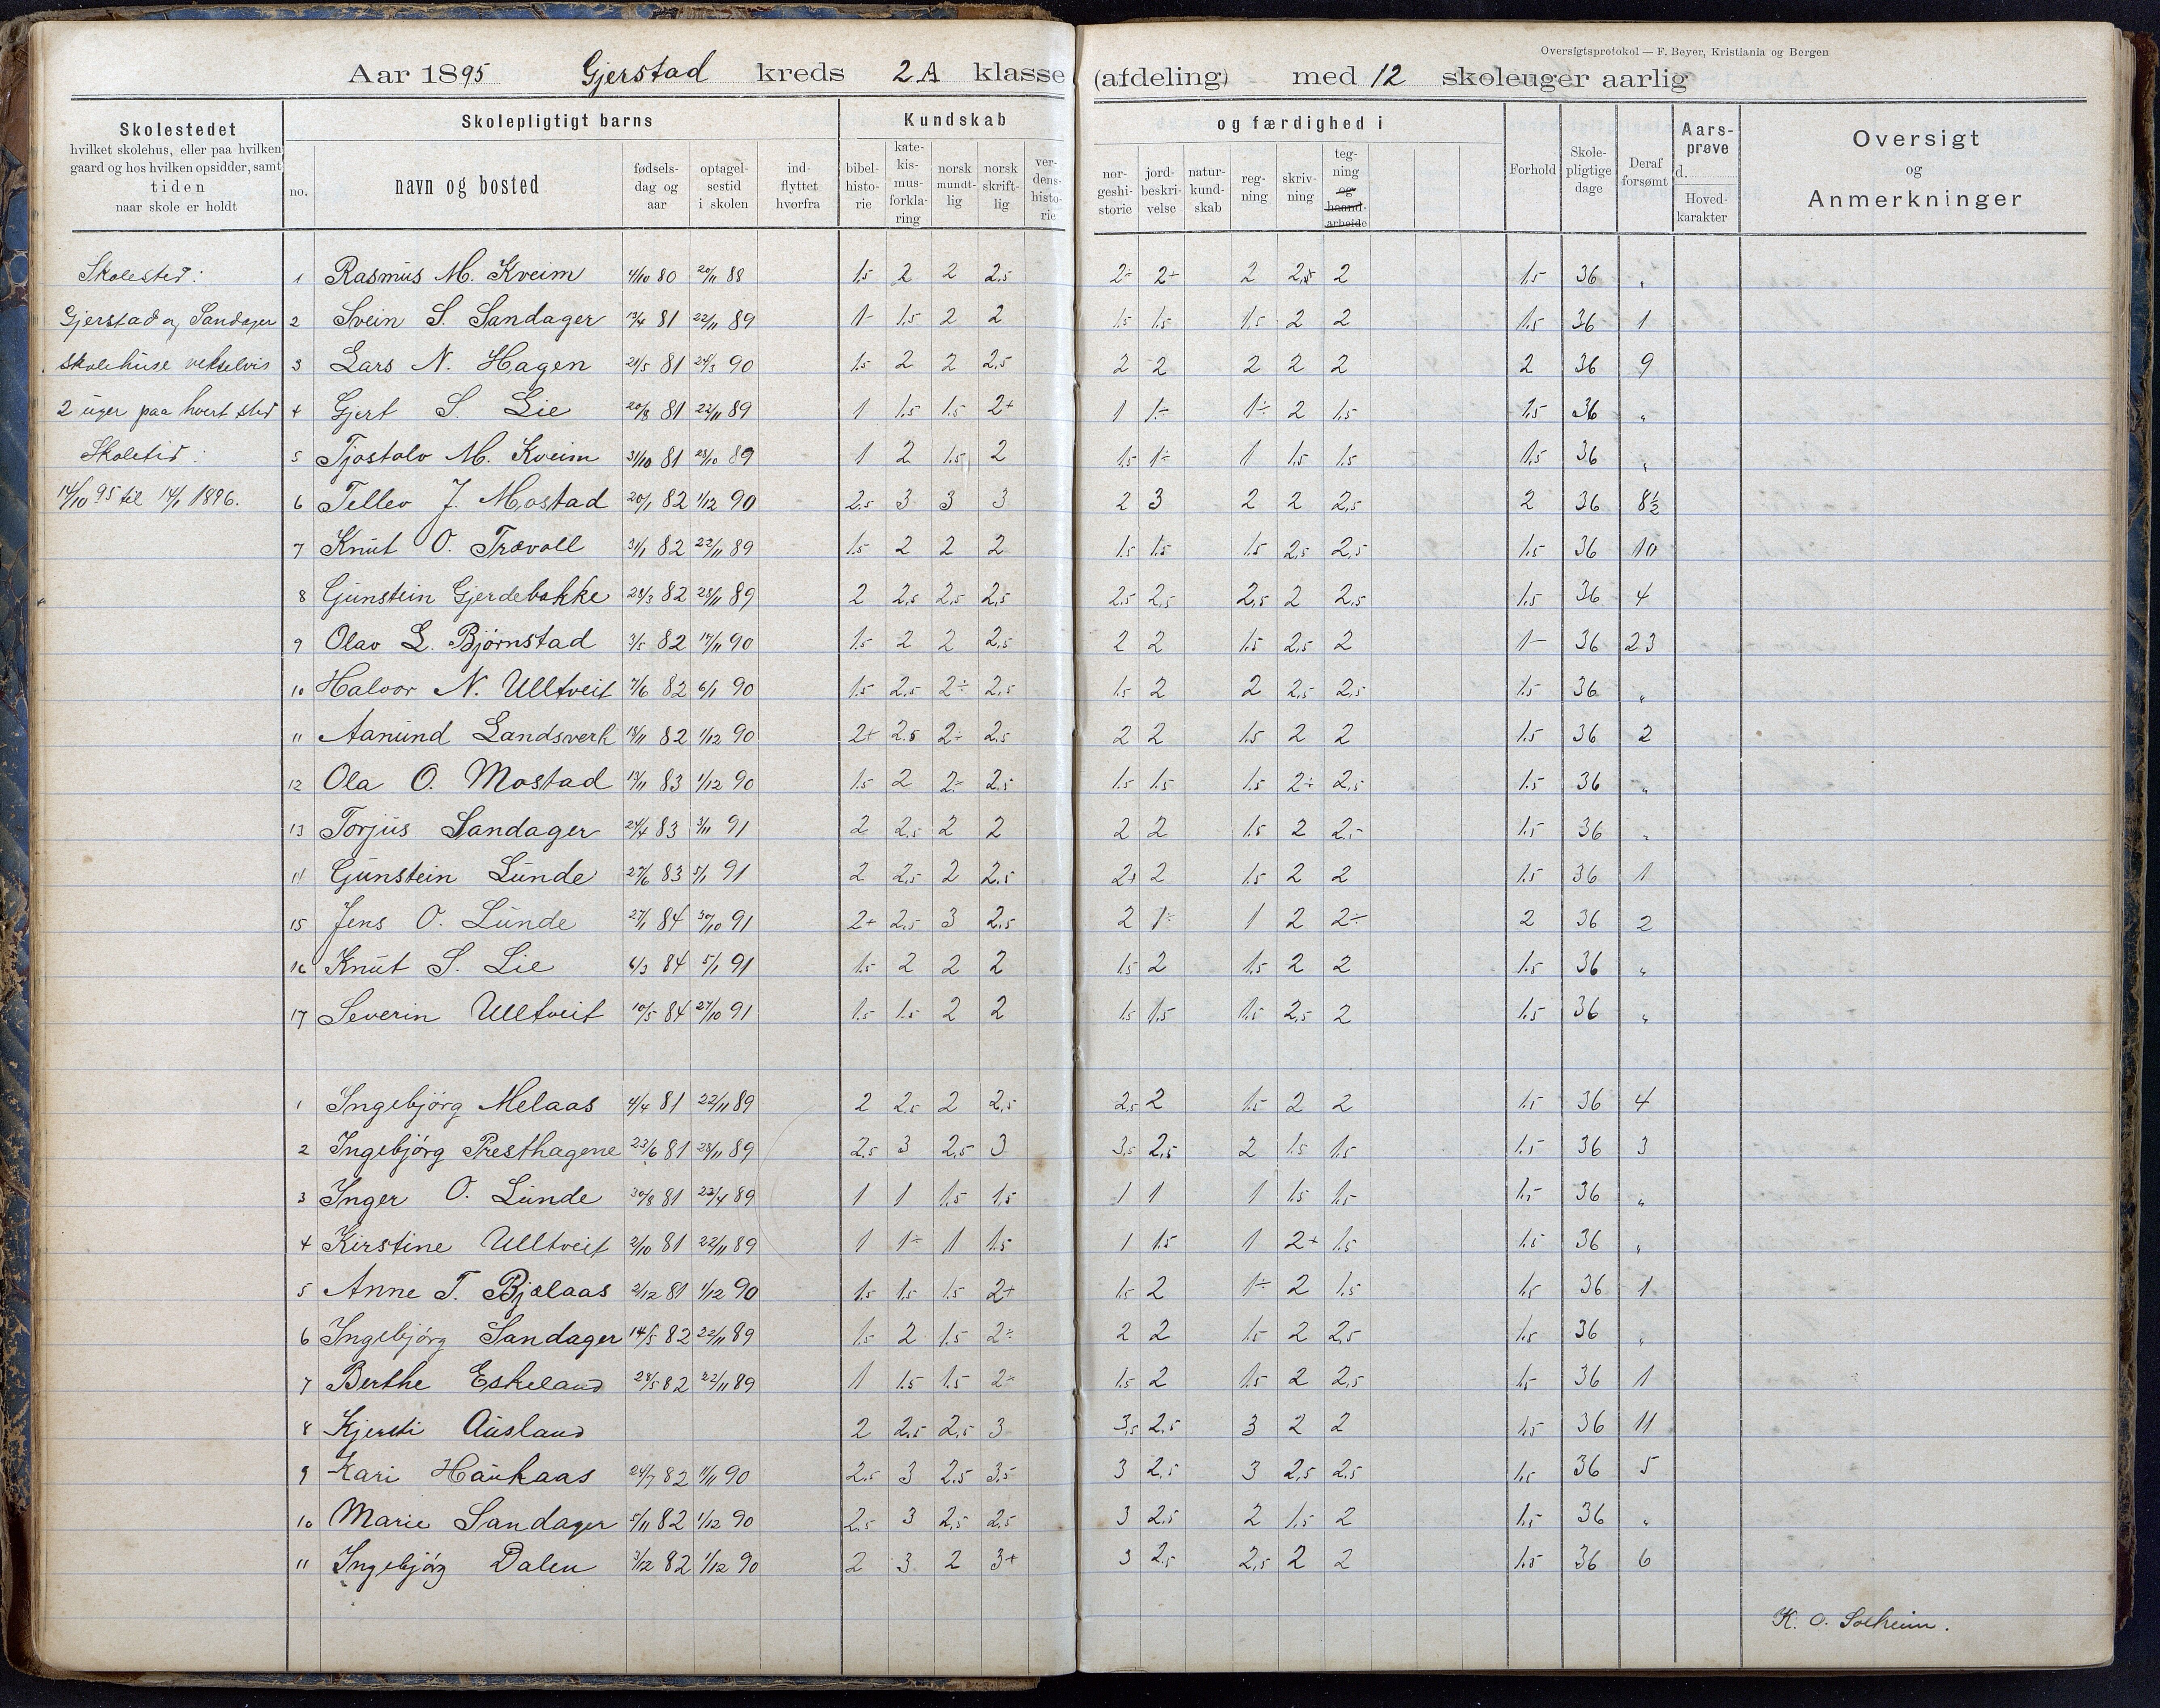 Oversigtsprotokol — F. Beyer, Kristiania og Bergen
Aar 1895 Gjerstad kreds 2A klasse (afdeling) med 12 skoleuger aarlig
Skolestedet hvilket skolehus, eller paa hvilken gaard og hos hvilken opsidder, samt tiden naar skole er holdt
Skolepligtigt barns
no. navn og bosted fødsels-dag og aar optagel-sestid i skolen ind-flyttet hvorfra
Kundskab og færdighed i
bibel-histo-rie kate-kis-mus-forkla-ring norsk mundt-lig norsk skrift-lig ver-dens-histo-rie nor-geshi-storie jord-beskri-velse natur-kund-skab reg-ning skriv-ning teg-ning og haand-arbeide
Forhold Skole-pligtige dage Deraf forsømt Aars-prøve d. Hoved-karakter
Oversigt og Anmerkninger
Skolested:
Gjerstad og Sandager
skolehuse vekselvis
2 uger paa hvert sted
Skoletid:
14/10 95 til 14/1 1896.
1 Rasmus M. Kveim 4/10 80 20/11 88 1.5 2 2 2.5 2÷ 2+ 2 2.5 2 1.5 36 "
2 Svein S. Sandager 13/4 81 22/11 89 1- 1.5 2 2 1.5 1.5 1.5 2 2 1.5 36 1
3 Lars N. Hagen 21/5 81 24/3 90 1.5 2 2 2.5 2 2 2 2 2 2 36 9
4 Gjert S. Lie 20/8 81 22/11 89 1 1.5 1.5 2+ 1 1÷ 1÷ 2 1.5 1.5 36 "
5 Tjostolv M. Kveim 31/10 81 23/10 89 1 2 1.5 2 1.5 1÷ 1 1.5 1.5 1.5 36 "
6 Tellev J. Mostad 20/1 82 1/12 90 2.5 3 3 3 2 3 2 2 2.5 2 36 8½
7 Knut O. Trævoll 31/1 82 22/11 89 1.5 2 2 2 1.5 1.5 1.5 2.5 2.5 1.5 36 10
8 Gunstein Gjerdebakke 28/3 82 28/11 89 2 2.5 2.5 2.5 2.5 2.5 2.5 2 2.5 1.5 36 4
9 Olav L. Bjørnstad 3/5 82 17/11 90 1.5 2 2 2.5 2 2 1.5 2.5 2 1- 36 23
10 Halvor N. Ulltveit 7/6 82 6/1 90 1.5 2.5 2÷ 2.5 1.5 2 2 2.5 2.5 1.5 36 "
11 Aanund Landsverk 18/11 82 1/12 90 2+ 2.5 2÷ 2.5 2 2 1.5 2 2 1.5 36 2
12 Ola O. Mostad 13/11 83 1/12 90 1.5 2 2÷ 2.5 1.5 1.5 1.5 2÷ 2.5 1.5 36 "
13 Torjus Sandager 24/4 83 3/11 91 2 2.5 2 2 2 2 1.5 2 2.5 1.5 36 "
14 Gunstein Lunde 27/6 83 5/1 91 2 2.5 2 2.5 2+ 2 1.5 2 2 1.5 36 1
15 Jens O. Lunde 27/1 84 30/10 91 2+ 2.5 3 2.5 2 1÷ 1 2 2÷ 2 36 2
16 Knut S. Lie 6/3 84 5/1 91 1.5 2 2 2 1.5 2 1.5 2 2 1.5 36 "
17 Severin Ulltveit 10/5 84 27/10 91 1.5 1.5 2 2 1.5 1.5 1.5 2.5 2 1.5 36 "
1 Ingebjörg Melaas 4/4 81 22/11 89 2 2.5 2 2.5 2.5 2 1.5 2 2 1.5 36 4
2 Ingebjörg Presthagene 23/6 81 28/11 89 2.5 3 2.5 3 3.5 2.5 2 1.5 1.5 1.5 36 3
3 Inger O. Lunde 30/8 81 22/4 89 1 1 1.5 1.5 1 1 1 1.5 1.5 1.5 36 "
4 Kirstine Ulltveit 2/10 81 22/11 89 1 1÷ 1 1.5 1 1.5 1 2+ 1.5 1.5 36 "
5 Anne T. Bjælaas 2/12 81 1/12 90 1.5 1.5 1.5 2+ 1.5 2 1÷ 2 1.5 1.5 36 1
6 Ingebjörg Sandager 14/5 82 22/11 89 1.5 2 1.5 2÷ 2 2 1.5 2 2.5 1.5 36 "
7 Berthe Eskeland 28/5 82 22/11 89 1 1.5 1.5 2÷ 1.5 2 1.5 2 2.5 1.5 36 1
8 Kjersti Ausland 2 2.5 2.5 3 3.5 2.5 3 2 2 1.5 36 11
9 Kari Haukaas 24/7 82 11/11 90 2.5 3 2.5 3.5 3 2.5 3 2.5 2.5 1.5 36 5
10 Marie Sandager 5/11 82 1/12 90 2.5 3 2.5 2.5 3 2.5 2 1.5 2 1.5 36 "
11 Ingebjörg Dalen 3/12 82 1/12 90 2 3 2 3+ 3 2.5 2.5 2 2 1.5 36 6
K. O. Solheim.